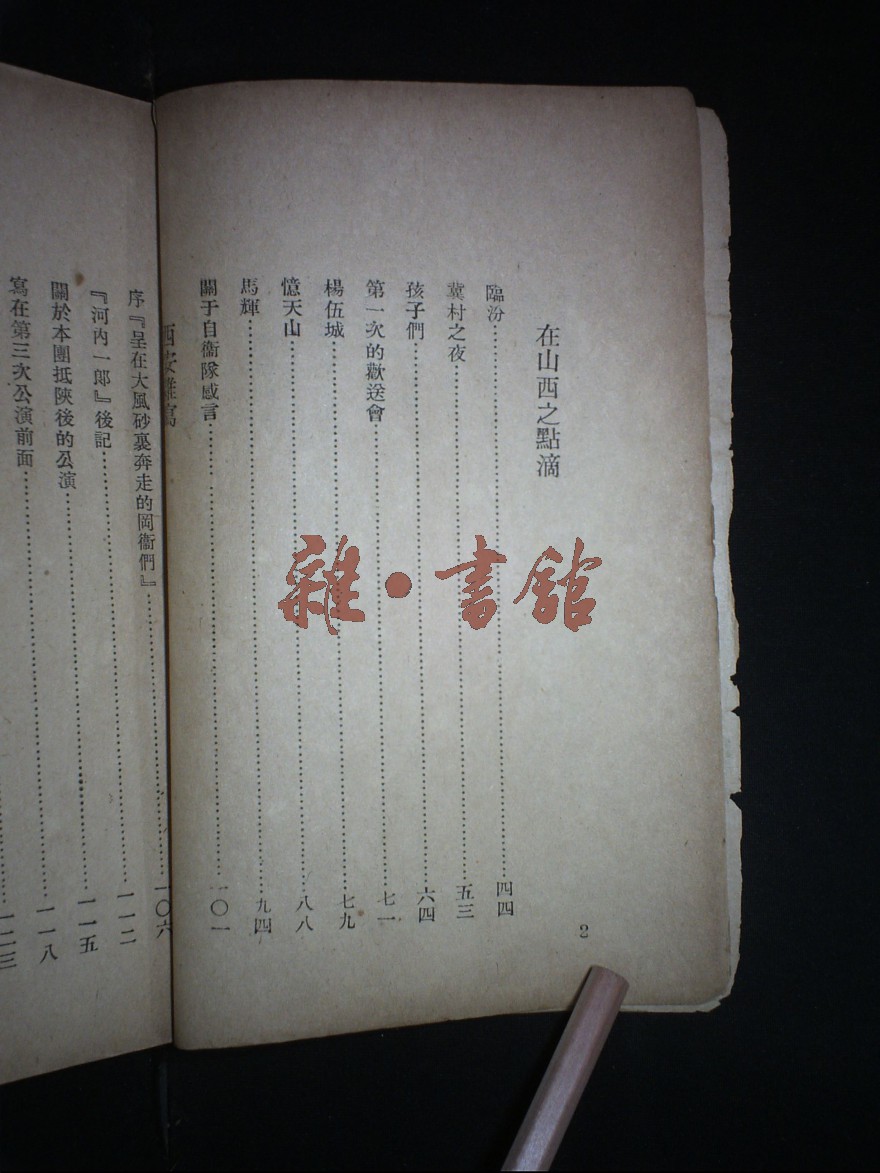 在山西之點滴
臨汾……四四
冀村之夜……五三
孩子們……六四
第一次的歡送會……七一
楊伍城……七九
憶天山……八八
馬輝……九四
關于自衞隊感言……一〇一
西安雜寫
序『呈在大風砂裏奔走的岡衞們』……一〇六
『河內一郎』後記……一一二
關於本團抵陝後的公演……一一五
寫在第三次公演前面……一一八
……一二三
2
雜·書館